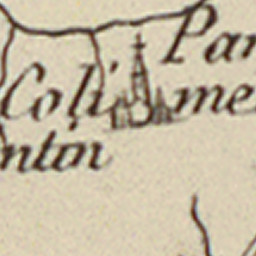 Par
Coli me
ntin